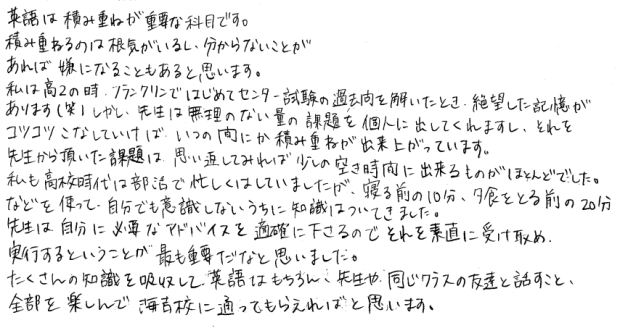 英語は積み重ねが重要な科目です。
積み重ねるのは根気がいるし、分からないことが
あれば嫌になることもあると思います。
私は高2の時、フランクリンではじめてセンター試験の過去問を解いたとき、絶望した記憶が
あります(笑)しかし、先生は無理のない量の課題を個人に出してくれますし、それを
コツコツこなしていけば、いつの間にか積み重ねが出来上がっています。
先生から頂いた課題は、思い返してみれば少しの空き時間に出来るものがほとんどでした。
私も高校時代は部活で忙しくはしていましたが、寝る前の10分、夕食をとる前の20分
などを使って、自分でも意識しないうちに知識はついてきました。
先生は自分に必要なアドバイスを適確に下さるのでそれを素直に受け取め、
実行するということが最も重要だなと思いました。
たくさんの知識を吸収して、英語はもちろん、先生や、同じクラスの友達と話すこと、
全部を楽しんで海吉校に通ってもらえればと思います。